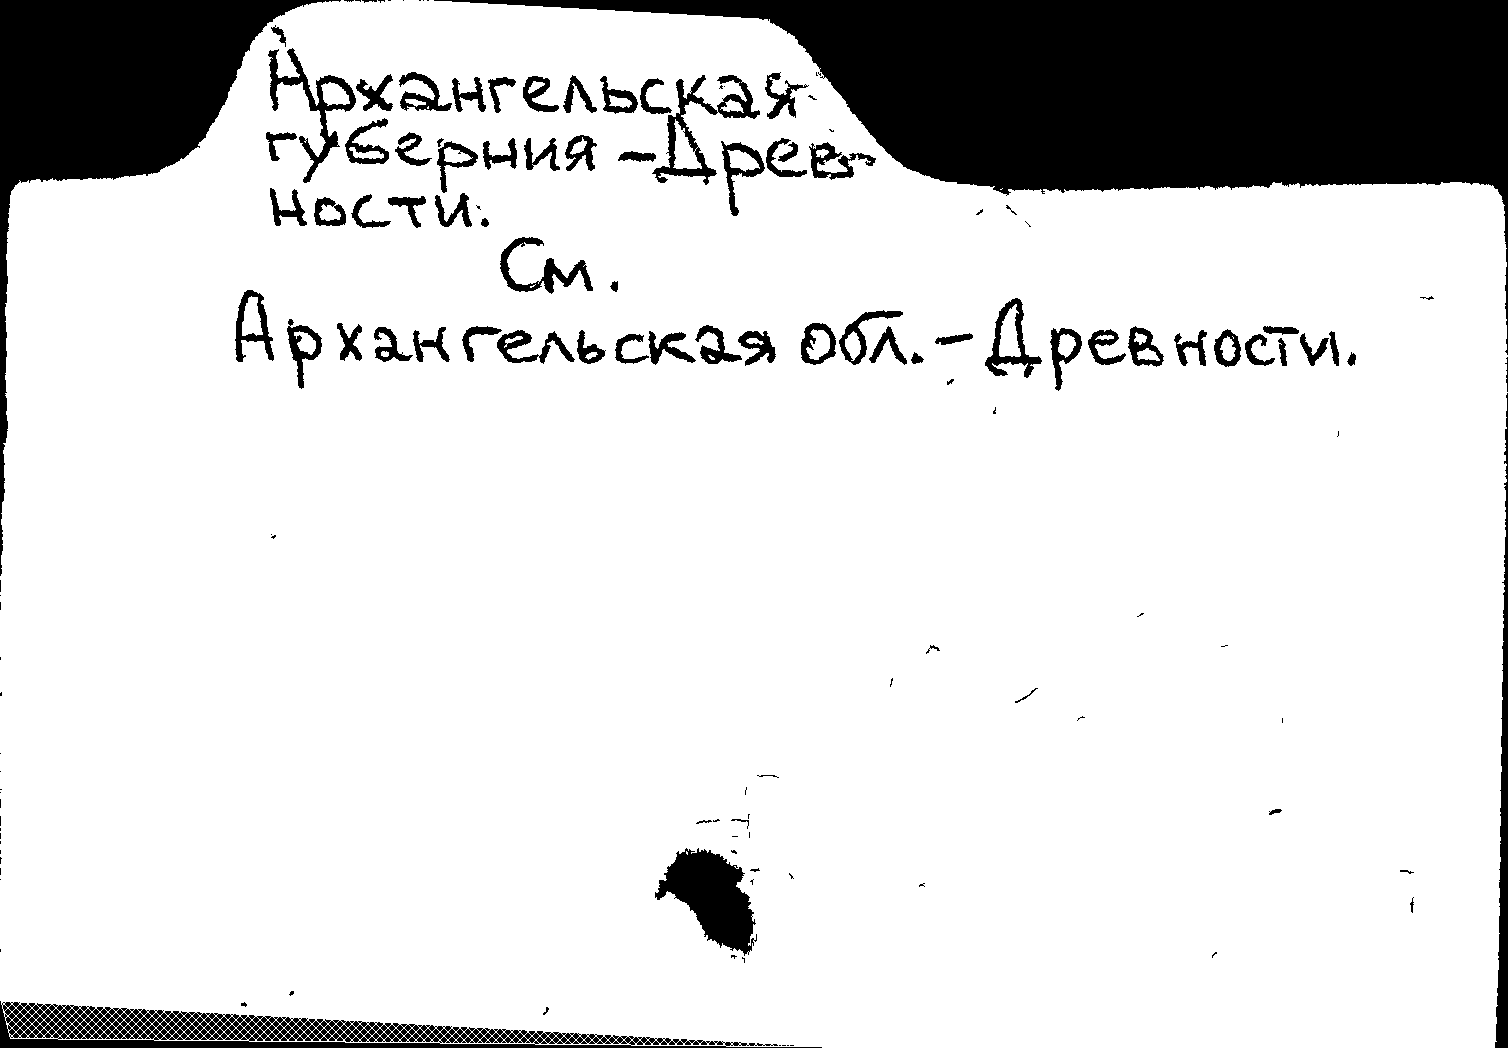 Архангельская
губерния - Древ-
ности.
См.
Архангельская обл. - Древности.